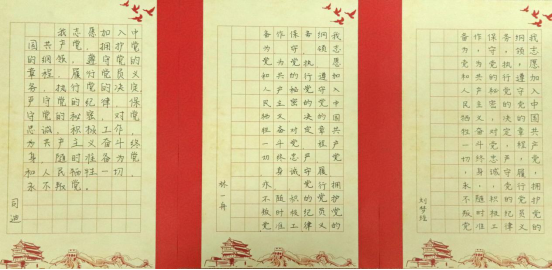 我志愿加入中
国共产党，拥护党
的纲领，遵守党的
章程，履行党员义
务，执行党的决定，
严守党的纪律，保
守党的秘密，对党
忠诚，积极工作，
为共产主义奋斗终
身，随时准备为党
和人民牺牲一切，
永不叛党。
我志愿加入中国共产党 拥护党的
纲领 遵守党的章程 履行党员义
务 执行党的决定 严守党的纪律
保守党的秘密 对党忠诚 积极工
作 为共产主义奋斗终身 随时准
备为党和人民牺牲一切 永不叛党
我志愿加入中国共产党，拥护党的
纲领，遵守党的章程，履行党员义
务，执行党的决定，严守党的纪律，
保守党的秘密，对党忠诚，积极工
作，为共产主义奋斗终身，随时准
备为党和人民牺牲一切，永不叛党